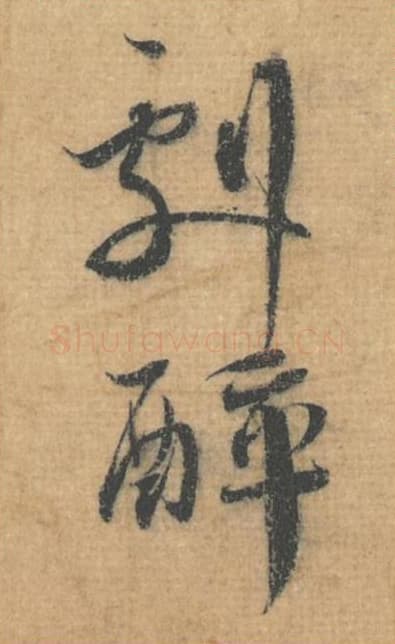 劇醉
Shufawang.CN